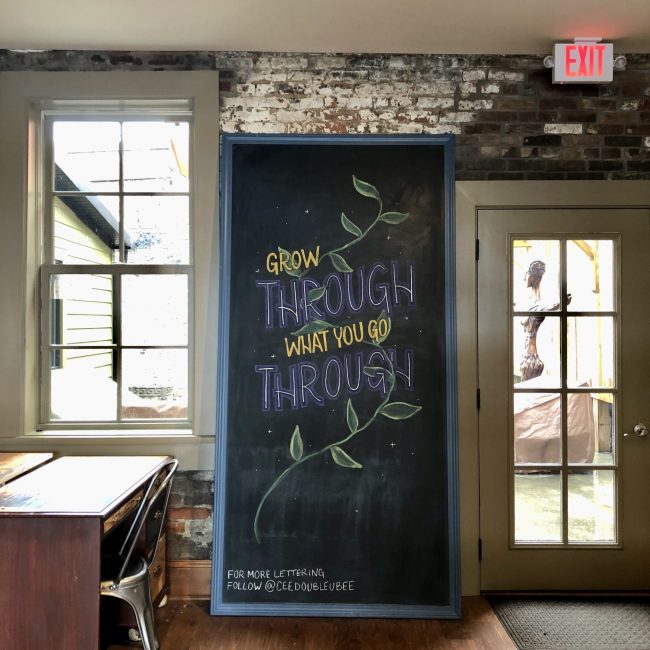 EXIT
GROW
THROUGH
WHAT YOU GO
THROUGH
FOR MORE LETTERING
FOLLOW @CEEDOUBLEUBEE